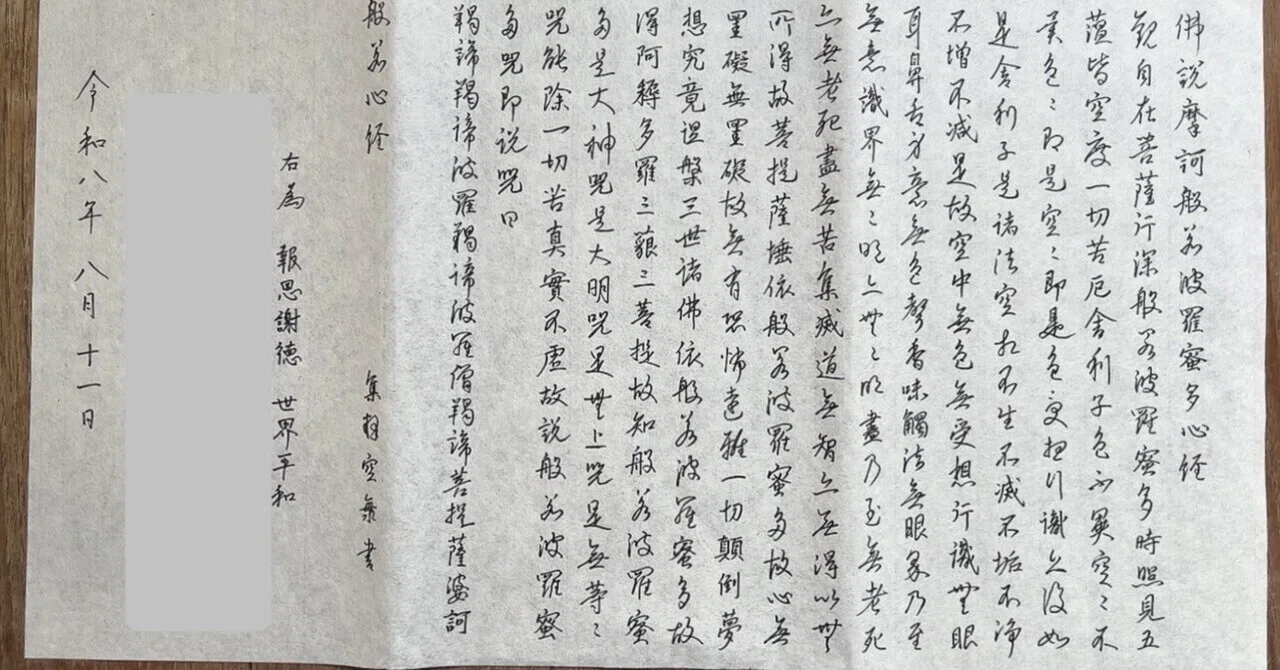 佛說摩訶般若波羅蜜多心経
観自在菩薩行深般若波羅蜜多時照見五
蘊皆空度一切苦厄舎利子色不異空〻不
異色〻即是空〻即是色受想行識亦復如
是舎利子是諸法空相不生不滅不垢不浄
不増不減是故空中無色無受想行識無眼
耳鼻舌身意無色聲香味觸法無眼界乃至
無意識界無〻明亦無〻明盡乃至無老死
亦無老死盡無苦集滅道無智亦無得以無
所得故菩提薩埵依般若波羅蜜多故心無
罣礙無罣礙故無有恐怖遠離一切顛倒夢
想究竟涅槃三世諸佛依般若波羅蜜多故
得阿耨多羅三藐三菩提故知般若波羅蜜
多是大神咒是大明咒是無上咒是無等〻
咒能除一切苦真實不虚故説般若波羅蜜
多咒即説咒曰
羯諦羯諦波羅羯諦波羅僧羯諦菩提薩婆訶
般若心経
集 空 書
右為 報恩謝徳 世界平和
令和八年 八月十一日